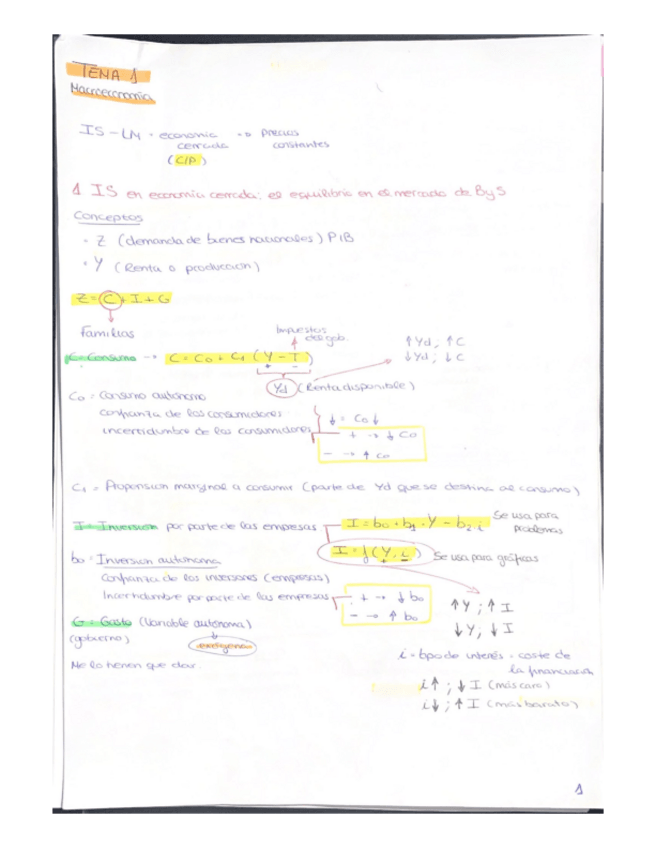 TEMA 1
Macroeconomia
IS-LM = economia cerrada → Precios constantes
(C/P)
1 IS en economia cerrada: el equilibrio en el mercado de ByS
Conceptos
• Z (demanda de bienes nacionales) PIB
• Y (Renta o produccion)
Z = C + I + G
Familias
Impuestos del gob.
C = Consumo → C = C0 + C1 (Y - T)
+ -
↑Yd, ↑C
↓Yd; ↓C
Yd (Renta disponible)
C0 = Consumo autónomo
confianza de los consumidores ↓ = C0 ↓
incertidumbre de los consumidores + → ↓ C0
- → ↑ C0
C1 = Propension marginal a consumir (parte de Yd que se destina al consumo)
I = Inversion por parte de las empresas I = b0 + b1 · Y - b2 · i Se usa para problemas
I = f (Y, i) Se usa para gráficas
+ -
b0 = Inversion autónoma
Confianza de los inversores (empresas)
Incertidumbre por parte de las empresas + → ↓ b0
- → ↑ b0
↑Y ; ↑I
↓Y; ↓I
G = Gasto (Variable autónoma)
(gobierno) exógena
Me lo tienen que dar.
i = tipo de interés = coste de la financiación
i↑ ; ↓I (más caro)
i↓ ; ↑I (más barato)
1